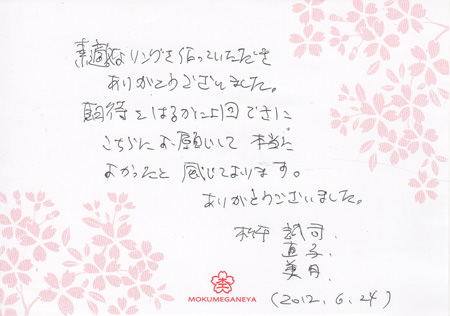 素敵なリングを作っていただき
ありがとうございました。
期待をはるかに上回るできに
こちらにお願いして 本当に
よかったと 感じております。
ありがとうございました。
誠司.
直子.
美月.
MOKUMEGANEYA
(2012. 6. 24)